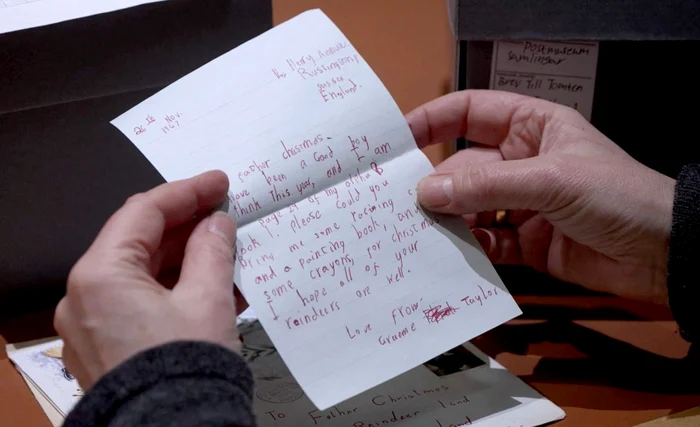 Postmuseum
Samlingar
Brev Till Tomten
Mary Avenue
Rustington,
Sussex
England.
26 th Nov.
1962
Father christmas.
Have been a Good boy
think this year, and I am
page 21 of my
Book, please could you
Bring me some racing
and a painting book, and
some crayons, for christmas
I hope all of your
reindeers are well.
Love from,
Graeme Taylor
To Father Christmas
Reindeer Land